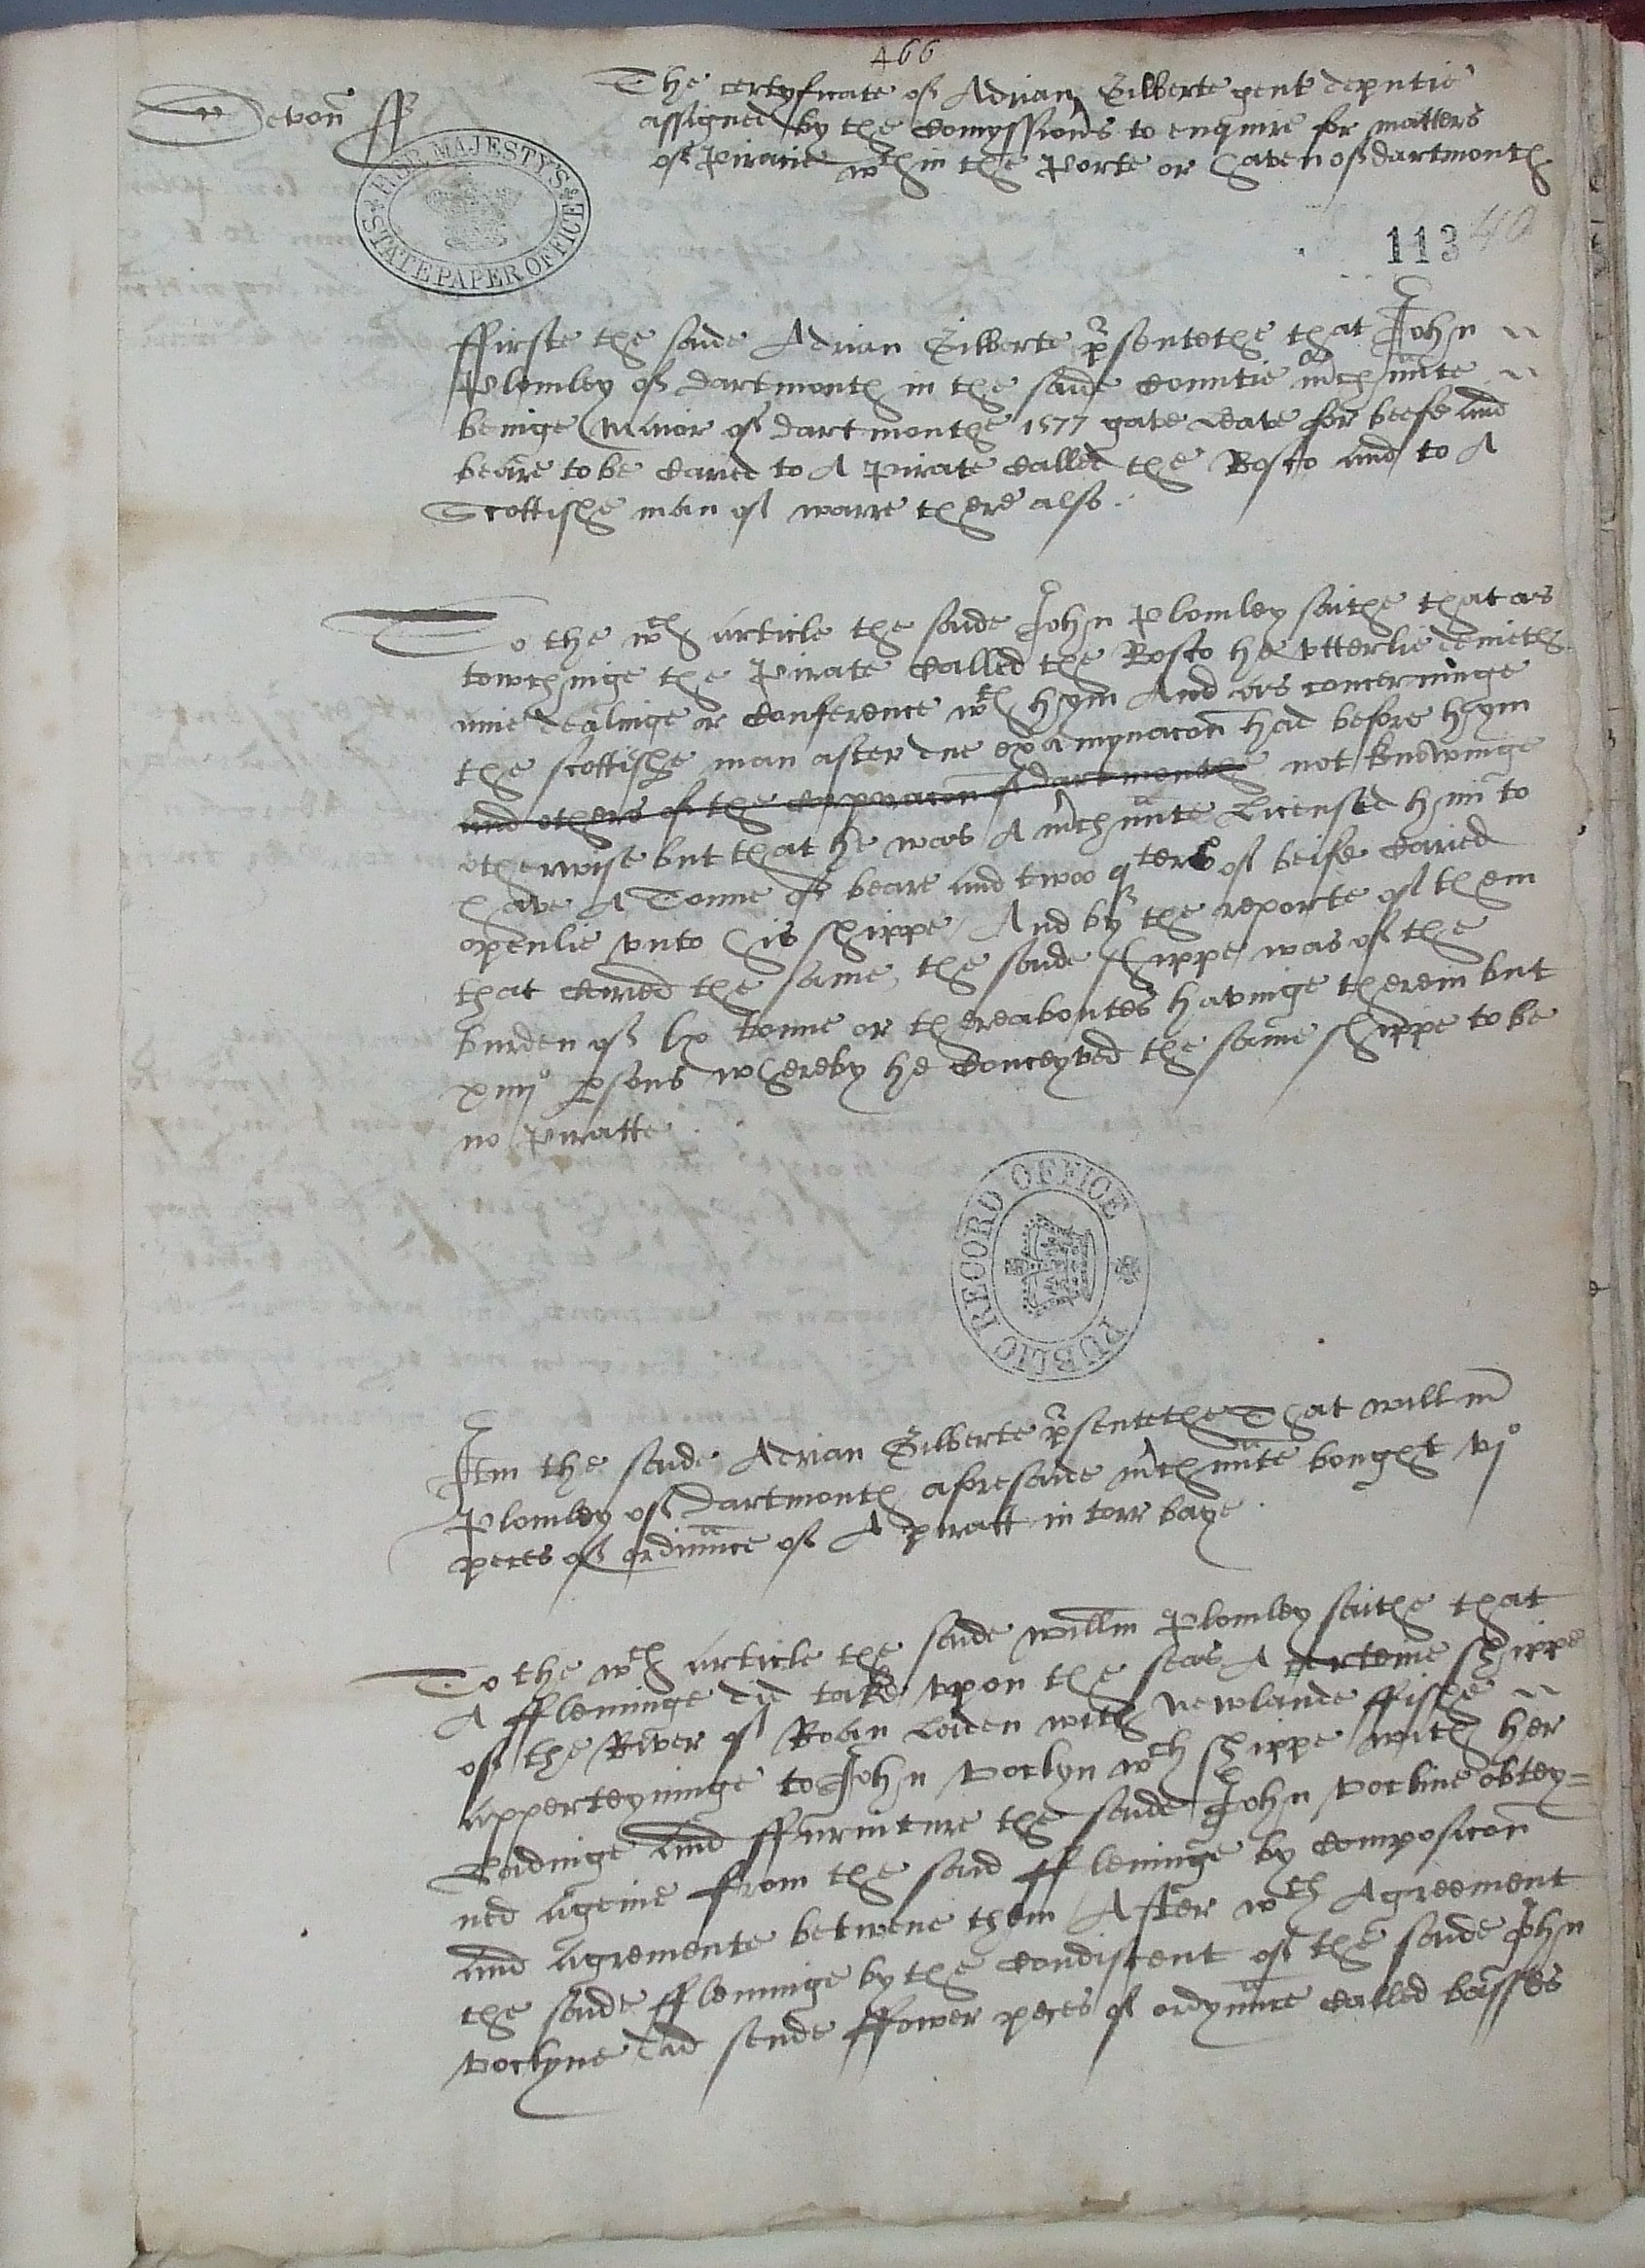 466
The certyficate of Adrian Gilberte gent deputie
Devon ff
assigned by the Comyssion's to enquire for matters
of Piracie wthin the Porte or haven of dartmouth
HER MAJESTY'S STATE PAPER OFFICE
113 40
ffirste the saide Adrian Gilberte p'sentethe that John
Plomley of dartmouth in the saide Countie m'chaunte
beinge Maior of dartmouthe 1577 gave Leave for beefe and
beare to be Caried to A Pirate Called the Rosco and to A
Scottishe man of warre there also.
To the wch article the saide John Plomley saithe that as
towchinge the Pirate Called the Rosco he vtterlie denieth
anie dealinge or Conference wth hym And as concerninge
the scottishe man after due examynacon had before hym
and others of the Corporacon of dartmouthe not knowinge
otherwise but that he was A m'chaunte Licensed him to
have A Tonne of beare and twoo qters of beife Caried
openlie vnto his shippe / And by the reporte of them
that Caried the same, the saide shippe was of the
burden of lx tonne or thereaboutes havinge therein but
xiiijo psons whereby he Conceyved the same shippe to be
no Piratte.
PUBLIC RECORD OFFICE
Itm the saide Adrian Gilberte p'sentethe That Willm
Plomley of dartmouth aforesaide m'chaunte bought vjo
peces of ordinaunce of A piratt in torr baye.
To the wch article the saide Willm Plomley saithe that
A ffleminge did take vpon the seas A certeine shippe
of the River of Roan Laden with Newlande ffishe
apperteyninge to John voclyn wch shippe with her
Ladinge and ffurniture the saide John Vocline obtey=
ned ageine from the said ffleminge by Composicon
and agremente betwene them / After wch Agreement
the saide ffleminge by the Condiscent of the saide John
voclyne did sende ffower peces of ordynaunce Called basses